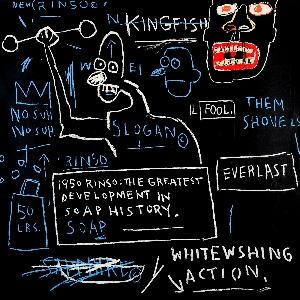 NEW RINSO©
N.
KINGFISH
W
E
NO SUH
NO SUH
SLOGAN©
IL FOOL.
THEM
SHOVELS
RINSO
EVERLAST
1950 RINSO: THE GREATEST
DEVELOPMENT IN
SOAP HISTORY.
SOAP
50
LBS.
WHITEWSHING
ACTION.